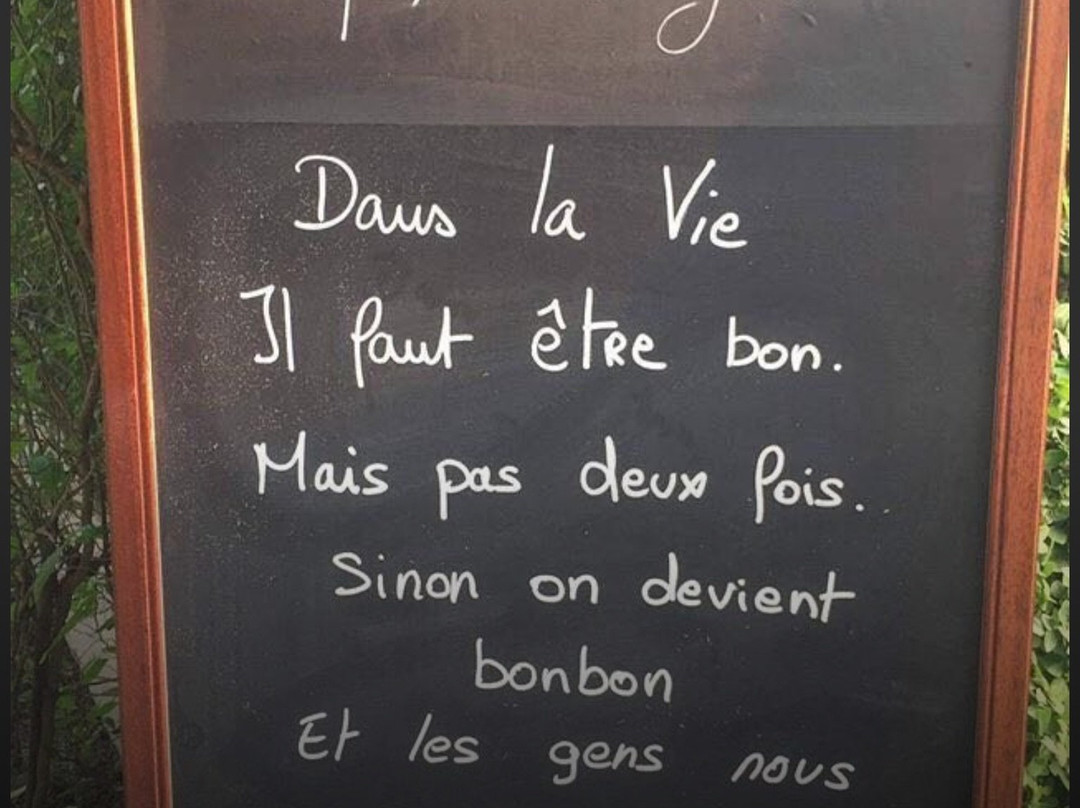 Dans la Vie
Il faut être bon.
Mais pas deux fois.
Sinon on devient
bonbon
Et les gens nous